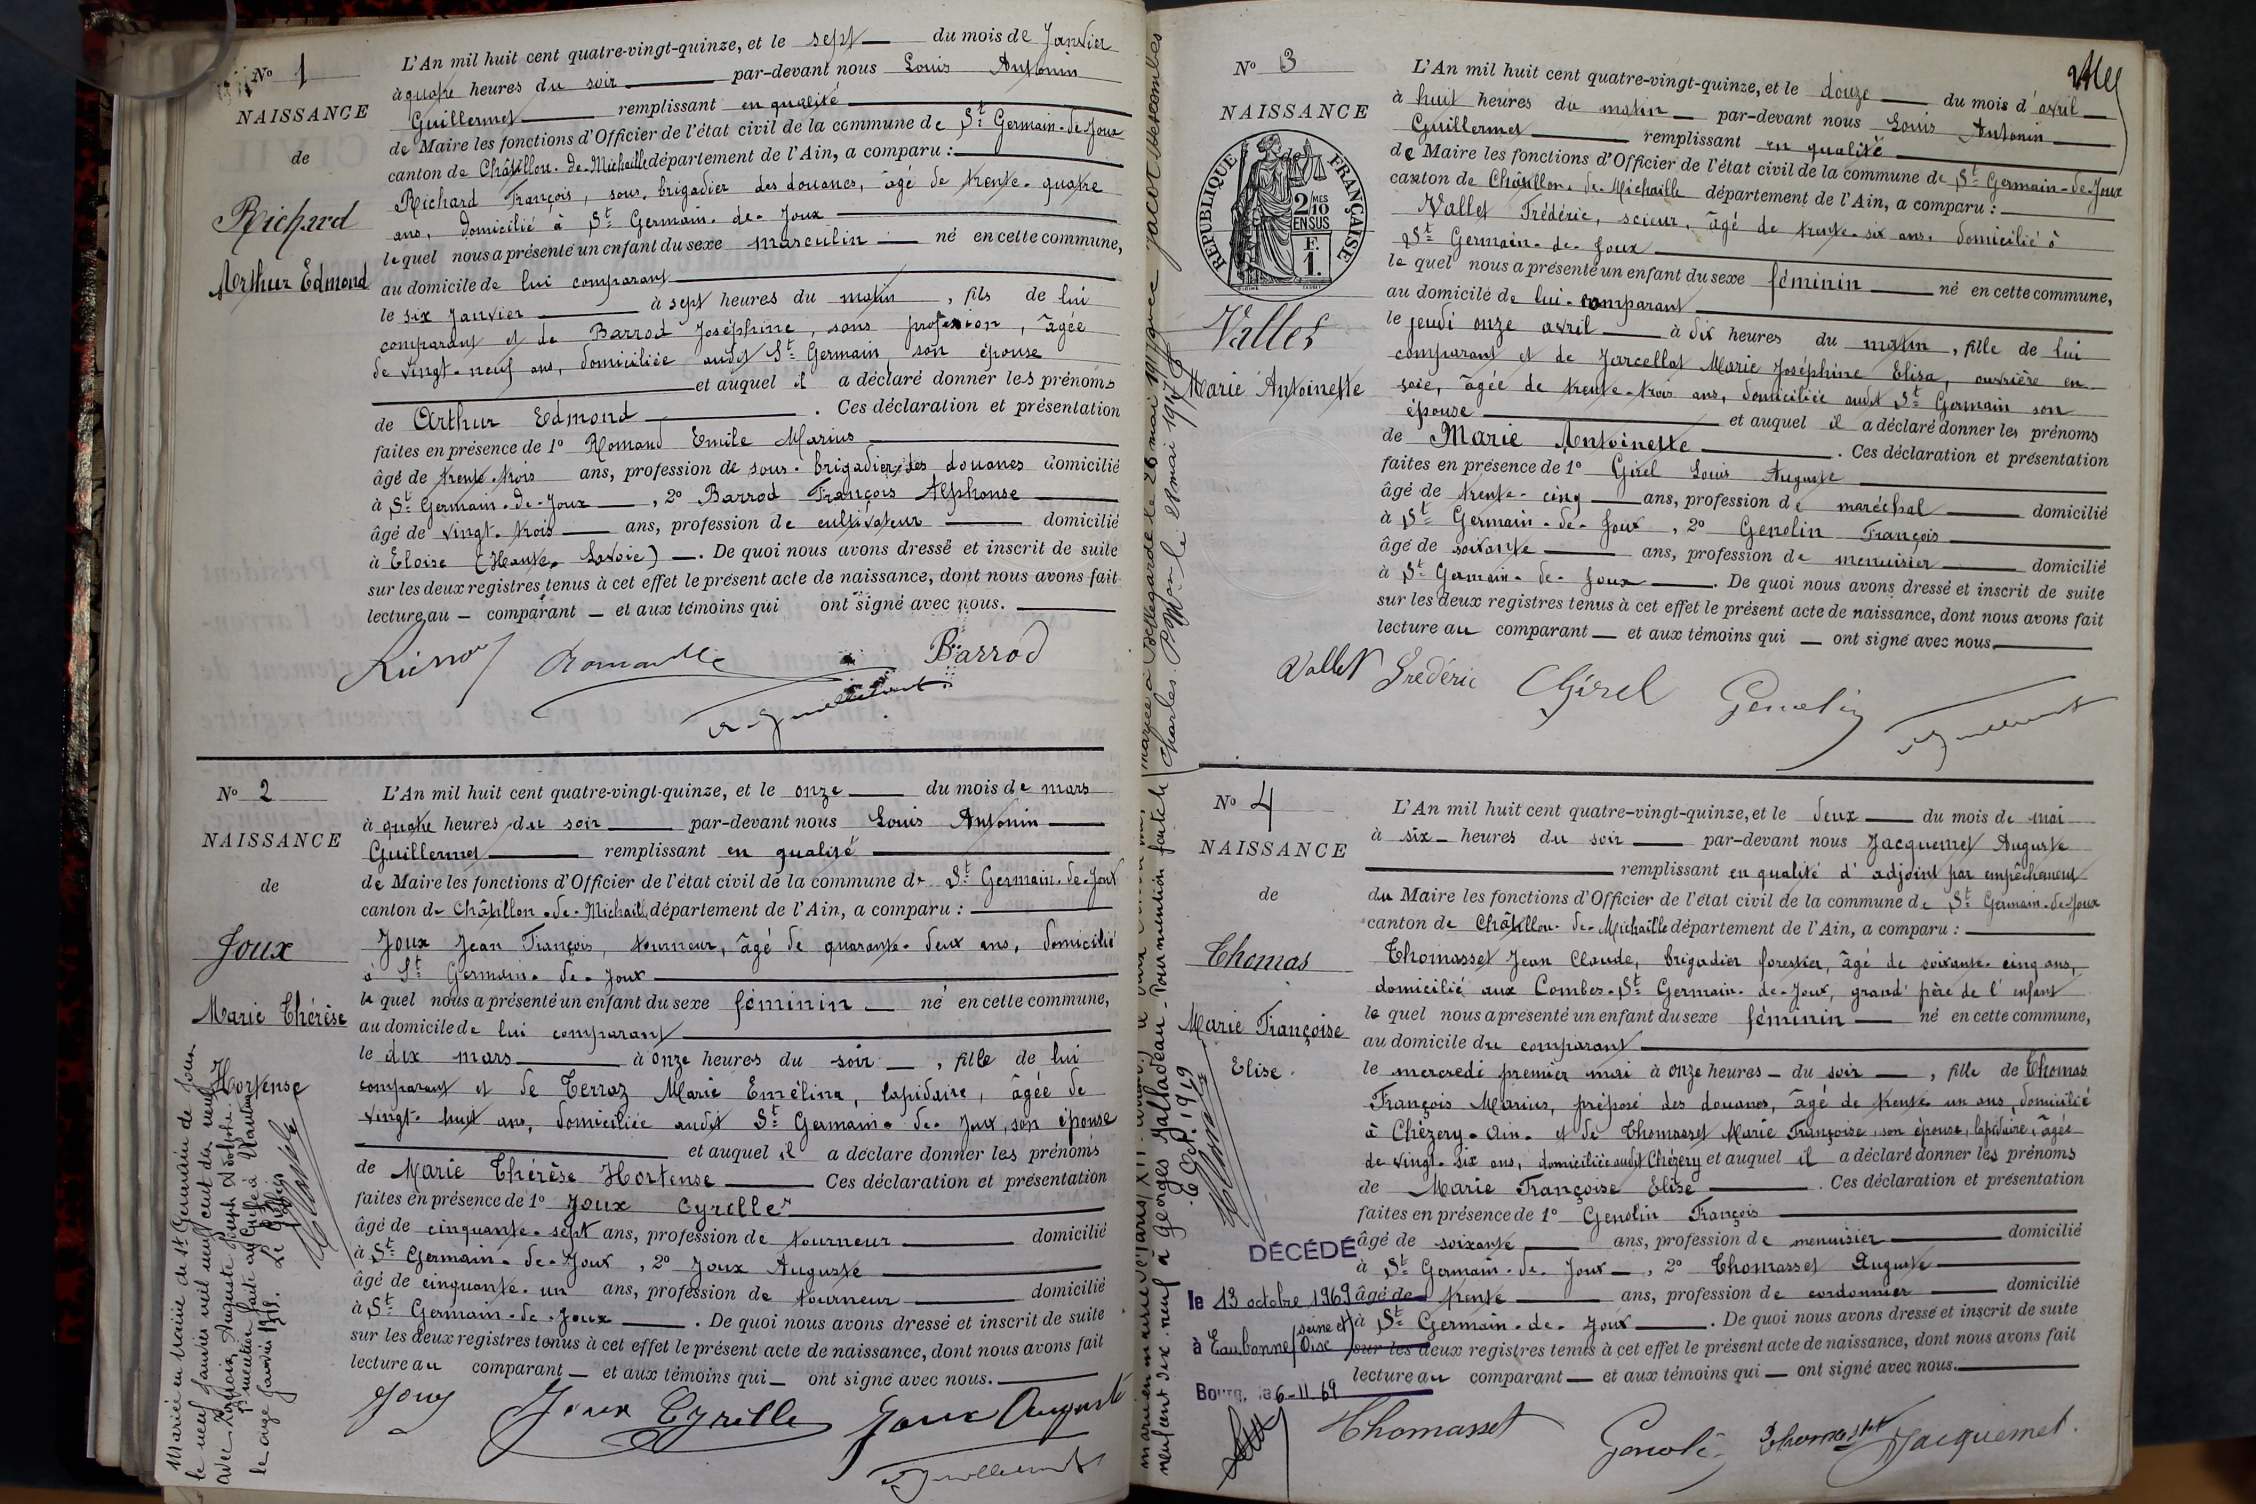 N° 1
NAISSANCE
de
Richard
Arthur Edmond
L'An mil huit cent quatre-vingt-quinze, et le sept du mois de Janvier
à quatre heures du soir par-devant nous Louis Antonin
Guillermet remplissant en qualité
de Maire les fonctions d'Officier de l'état civil de la commune de St Germain-de-Joux
canton de Châtillon-de-Michaille département de l'Ain, a comparu :
Richard François, sous-brigadier des douanes, âgé de trente-quatre
ans, domicilié à St Germain-de-Joux
lequel nous a présenté un enfant du sexe masculin né en cette commune,
au domicile de lui comparant
le six Janvier à sept heures du matin, fils de lui
comparant et de Barrod Joséphine, sans profession, âgée
de vingt-neuf ans, domiciliée audit St Germain, son épouse
et auquel il a déclaré donner les prénoms
de Arthur Edmond. Ces déclaration et présentation
faites en présence de 1° Romand Emile Marius
âgé de trente-trois ans, profession de sous-brigadier des douanes domicilié
à St Germain-de-Joux, 2° Barrod François Alphonse
âgé de vingt-trois ans, profession de cultivateur domicilié
à Eloise (Haute-Savoie). De quoi nous avons dressé et inscrit de suite
sur les deux registres tenus à cet effet le présent acte de naissance, dont nous avons fait
lecture au comparant et aux témoins qui ont signé avec nous.
Barrod
N° 2
NAISSANCE
de
Joux
Marie Thérèse
Hortense
L'An mil huit cent quatre-vingt-quinze, et le onze du mois de mars
à quatre heures du soir par-devant nous Louis Antonin
Guillermet remplissant en qualité
de Maire les fonctions d'Officier de l'état civil de la commune de St Germain-de-Joux
canton de Châtillon-de-Michaille département de l'Ain, a comparu :
Joux Jean François, tourneur, âgé de quarante-deux ans, domicilié
à St Germain-de-Joux
lequel nous a présenté un enfant du sexe féminin né en cette commune,
au domicile de lui comparant
le dix mars à onze heures du soir, fille de lui
comparant et de Terraz Marie Emélina, lapidaire, âgée de
vingt-huit ans, domiciliée audit St Germain-de-Joux, son épouse
et auquel il a déclaré donner les prénoms
de Marie Thérèse Hortense Ces déclaration et présentation
faites en présence de 1° Joux Cyrille
âgé de cinquante-sept ans, profession de tourneur domicilié
à St Germain-de-Joux, 2° Joux Auguste
âgé de cinquante-un ans, profession de tourneur domicilié
à St Germain-de-Joux. De quoi nous avons dressé et inscrit de suite
sur les deux registres tenus à cet effet le présent acte de naissance, dont nous avons fait
lecture au comparant et aux témoins qui ont signé avec nous.
Joux Joux Cyrille Joux Auguste
Mariée en mairie de St Germain de Joux
le neuf Janvier mil neuf cent dix neuf
avec Auguste Joseph Adolphe.
mention faite au Greffe à Nantua
le onze Janvier 1919. Le Greffier
N° 3
NAISSANCE
RÉPUBLIQUE FRANÇAISE
2 MES 10
EN SUS
F.
1.
Vallet
Marie Antoinette
L'An mil huit cent quatre-vingt-quinze, et le douze du mois d'avril
à huit heures du matin par-devant nous Louis Antonin
Guillermet remplissant en qualité
de Maire les fonctions d'Officier de l'état civil de la commune de St Germain-de-Joux
canton de Châtillon-de-Michaille département de l'Ain, a comparu :
Vallet Frédéric, scieur, âgé de trente-six ans, domicilié à
St Germain-de-Joux
lequel nous a présenté un enfant du sexe féminin né en cette commune,
au domicile de lui-comparant
le jeudi onze avril à dix heures du matin, fille de lui
comparant et de Jarcellat Marie Joséphine Elisa, ouvrière en
soie, âgée de trente-trois ans, domiciliée audit St Germain son
épouse et auquel il a déclaré donner les prénoms
de Marie Antoinette. Ces déclaration et présentation
faites en présence de 1° Girel Louis Auguste
âgé de trente-cinq ans, profession de maréchal domicilié
à St Germain-de-Joux, 2° Genolin François
âgé de soixante ans, profession de menuisier domicilié
à St Germain-de-Joux. De quoi nous avons dressé et inscrit de suite
sur les deux registres tenus à cet effet le présent acte de naissance, dont nous avons fait
lecture au comparant et aux témoins qui ont signé avec nous.
Vallet Frédéric Girel Genolin
mariée à Bellegarde le 26 mai 1917 avec Jacot Descombes
Charles. le 28 mai 1917
N° 4
NAISSANCE
de
Thomas
Marie Françoise
Elise.
L'An mil huit cent quatre-vingt-quinze, et le deux du mois de mai
à six heures du soir par-devant nous Jacquemet Auguste
remplissant en qualité d'adjoint par empêchement
du Maire les fonctions d'Officier de l'état civil de la commune de St Germain-de-Joux
canton de Châtillon-de-Michaille département de l'Ain, a comparu :
Thomasset Jean Claude, brigadier forestier, âgé de soixante-cinq ans,
domicilié aux Combes-St Germain-de-Joux, grand'père de l'enfant
lequel nous a présenté un enfant du sexe féminin né en cette commune,
au domicile du comparant
le mercredi premier mai à onze heures du soir, fille de Thomas
François Marius, préposé des douanes, âgé de trente-un ans, domicilié
à Chézery-Ain- et de Thomasset Marie Françoise, son épouse, lapidaire, âgée
de vingt-six ans, domiciliée audit Chézery et auquel il a déclaré donner les prénoms
de Marie Françoise Elise. Ces déclaration et présentation
faites en présence de 1° Genolin François
âgé de soixante ans, profession de menuisier domicilié
à St Germain-de-Joux, 2° Thomasset Auguste
âgé de trente ans, profession de cordonnier domicilié
à St Germain-de-Joux. De quoi nous avons dressé et inscrit de suite
sur les deux registres tenus à cet effet le présent acte de naissance, dont nous avons fait
lecture au comparant et aux témoins qui ont signé avec nous.
Thomasset Thomasset Jacquemet
DÉCÉDÉ
le 13 octobre 1969
à Eaubonne (Seine et Oise)
Bourg, le 6-11-69
neuf cent dix-neuf à Georges Galhadeau - Pour mention faite le